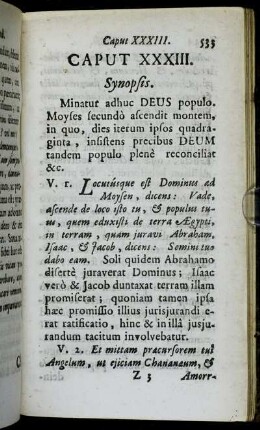 Caput XXXIII. 533
CAPUT XXXIII.
Synopsis.
Minatur adhuc DEUS populo.
Moyses secundò ascendit montem,
in quo, dies iterum ipsos quadra-
ginta, insistens precibus DEUM
tandem populo plenè reconciliat
&c.
V. 1. Locutúsque est Dominus ad
Moysen, dicens: Vade,
ascende de loco isto tu, & populus tu-
us, quem eduxisti de terra Ægypti,
in terram, quam juravi Abraham,
Isaac, & Jacob, dicens: Semini tuo
dabo eam. Soli quidem Abrahamo
disertè juraverat Dominus; Isaac
verò & Jacob duntaxat terram illam
promiserat; quoniam tamen ipsa
hæc promissio illius jurisjurandi e-
rat ratificatio, hinc & in illâ jusju-
randum tacitum involvebatur.
V. 2. Et mittam præcursorem tui
Angelum, ut ejiciam Chananæum, &
Z 3 Amorr-